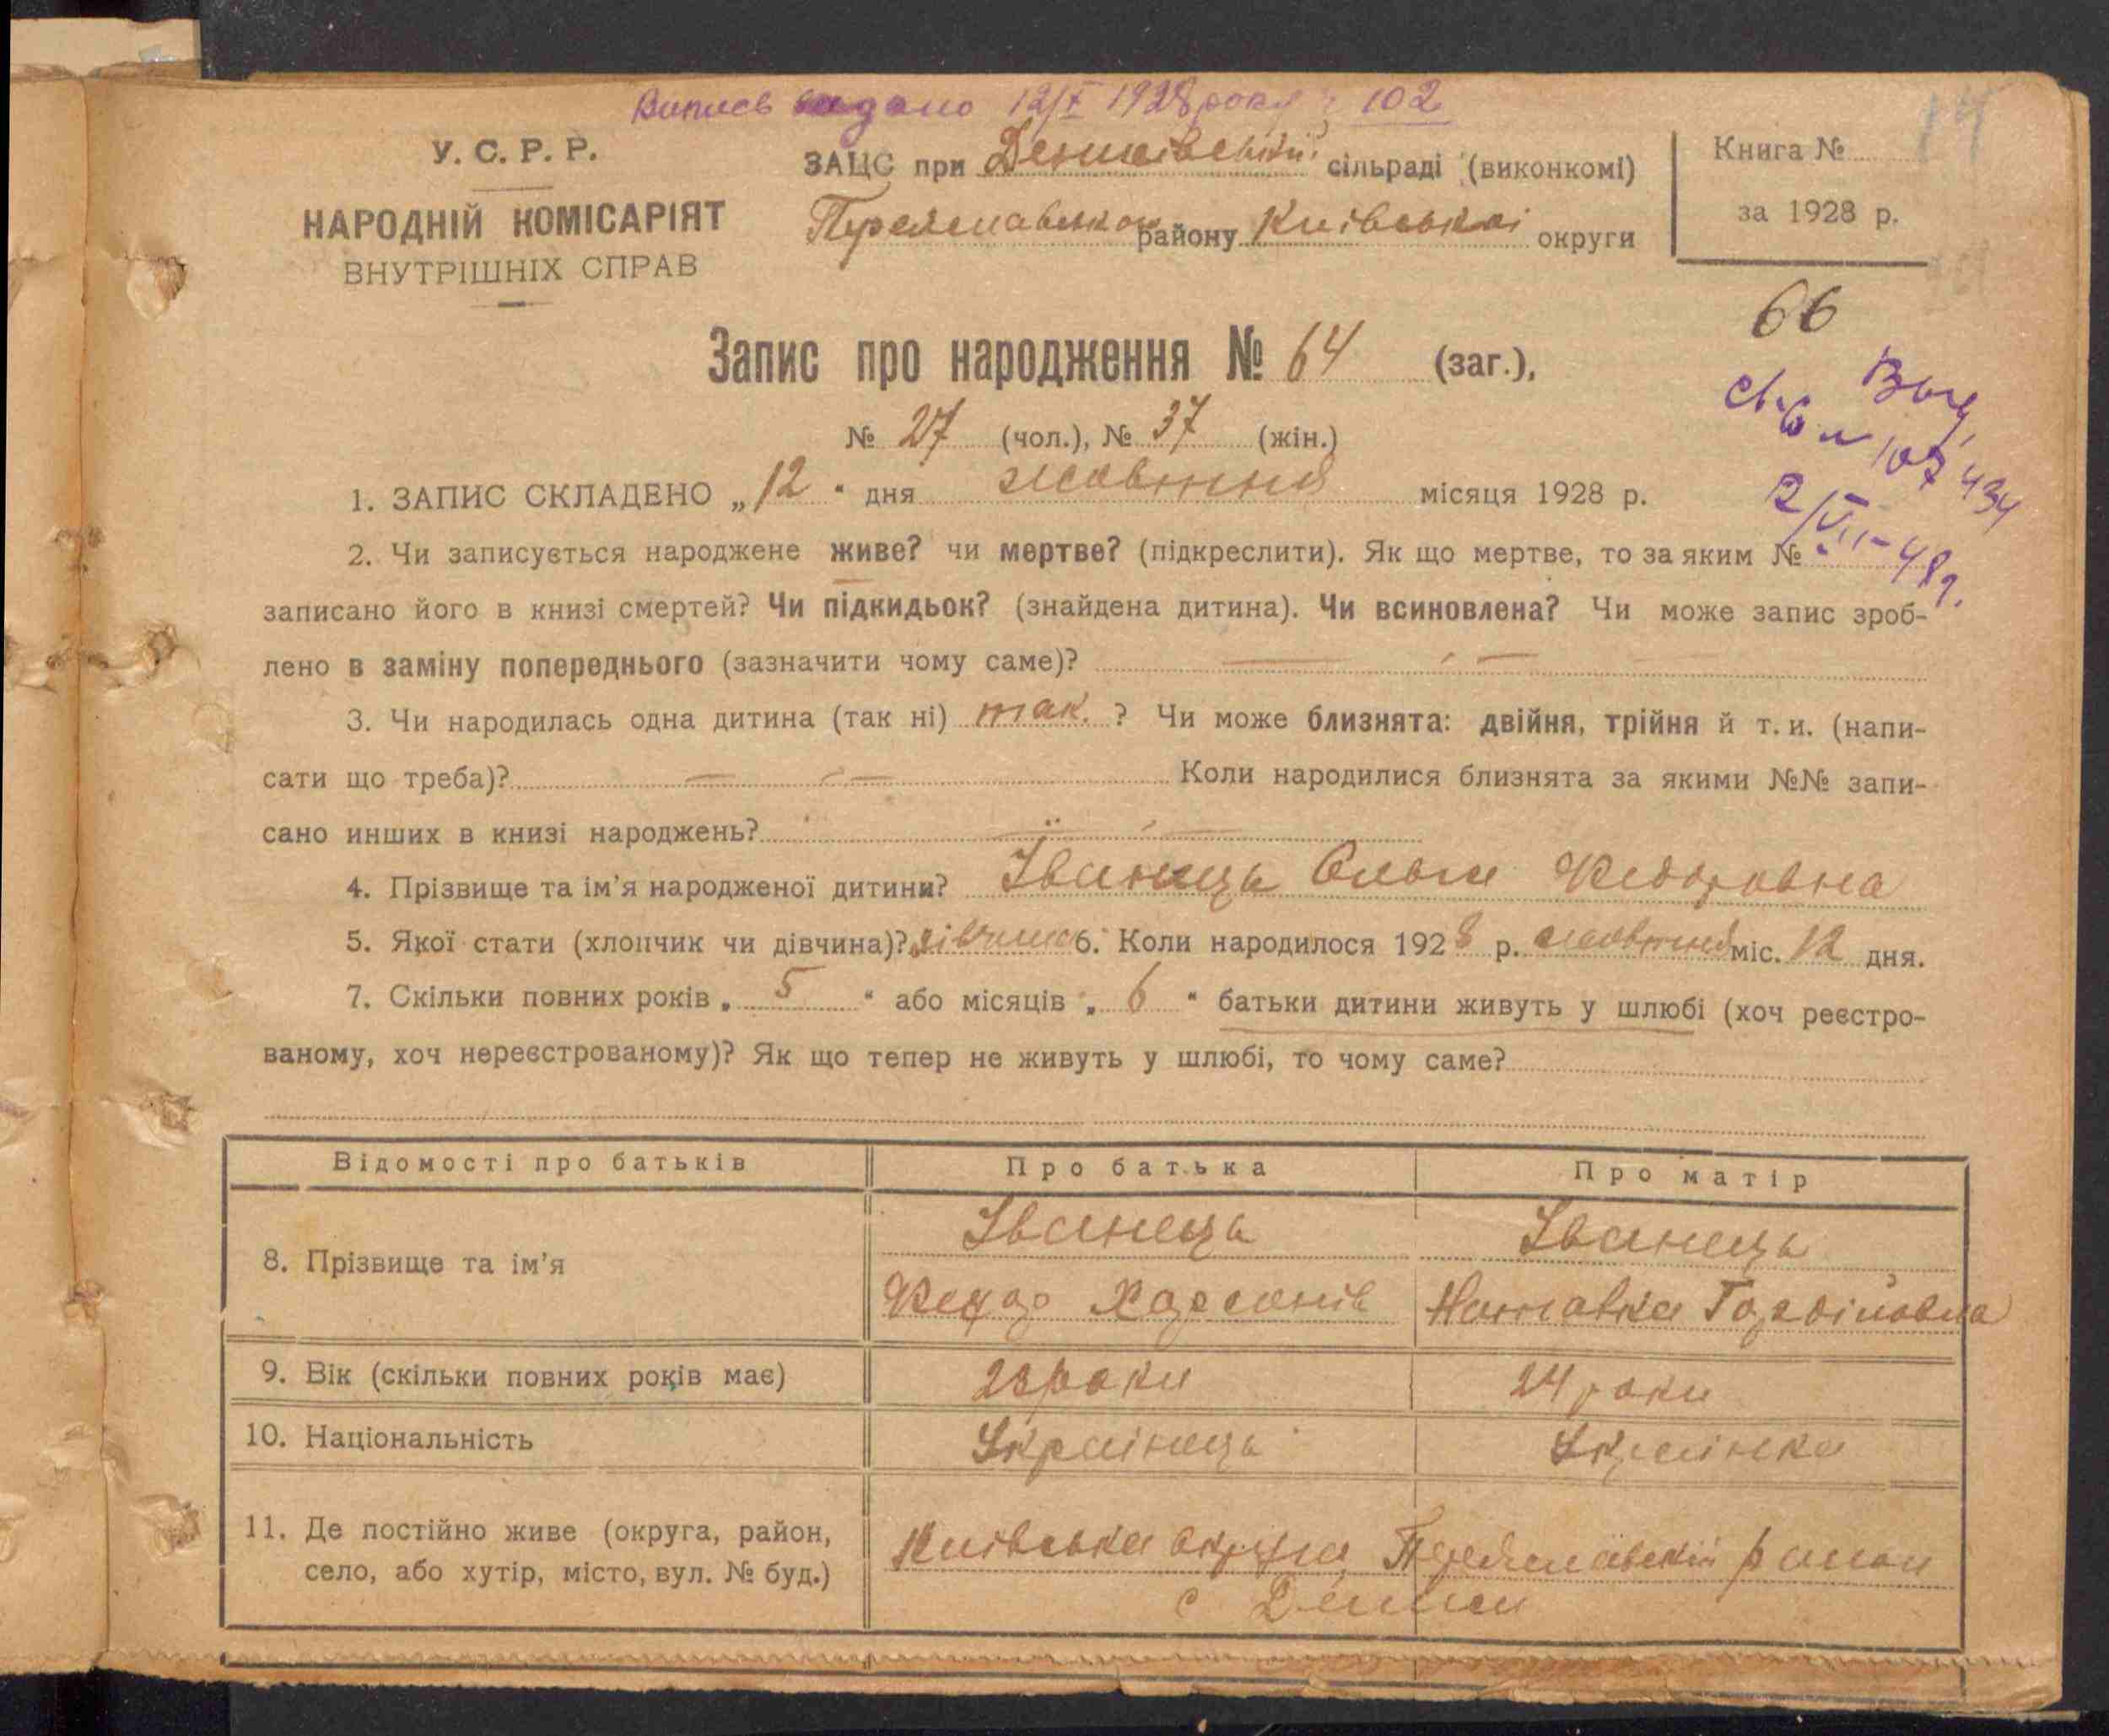 Випись видано 12/X 1928 року 102
У. С. Р. Р.
НАРОДНІЙ КОМІСАРІЯТ
ВНУТРІШНІХ СПРАВ
ЗАЦС при сільраді (виконкомі)
району Київської округи
Книга №
за 1928 р.
66
Запис про народження № 64 (заг.),
№ 27 (чол.), № 37 (жін.)
107434
1. ЗАПИС СКЛАДЕНО „12“ дня жовтня місяця 1928 р.
2. Чи записується народжене живе? чи мертве? (підкреслити). Як що мертве, то за яким №
записано його в книзі смертей? Чи підкидьок? (знайдена дитина). Чи всиновлена? Чи може запис зроб-
лено в заміну попереднього (зазначити чому саме)?
3. Чи народилась одна дитина (так ні) так. ? Чи може близнята: двійня, трійня й т. и. (напи-
сати що треба)? Коли народилися близнята за якими №№ запи-
сано инших в книзі народжень?
4. Прізвище та ім'я народженої дитини? Іванець Ольга Федоровна
5. Якої стати (хлопчик чи дівчина)? дівчина 6. Коли народилося 1928 р. жовтня міс. 12 дня.
7. Скільки повних років „ 5 “ або місяців „ 6 “ батьки дитини живуть у шлюбі (хоч реєстро-
ваному, хоч нереєстрованому)? Як що тепер не живуть у шлюбі, то чому саме?
Відомості про батьків Про батька Про матір
8. Прізвище та ім'я Іванець Іванець
Федор Наталка Гордіновна
9. Вік (скільки повних років має) роки 24 роки
10. Національність Українець Українка
11. Де постійно живе (округа, район,
село, або хутір, місто, вул. № буд.) Київська округа, Переяславскій район
с Деньги